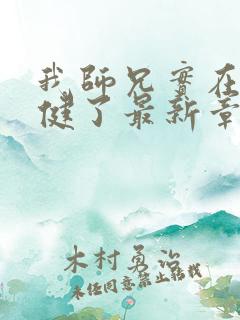 我師兄實在
健了最新章
木村勇治
未经同意禁止转载